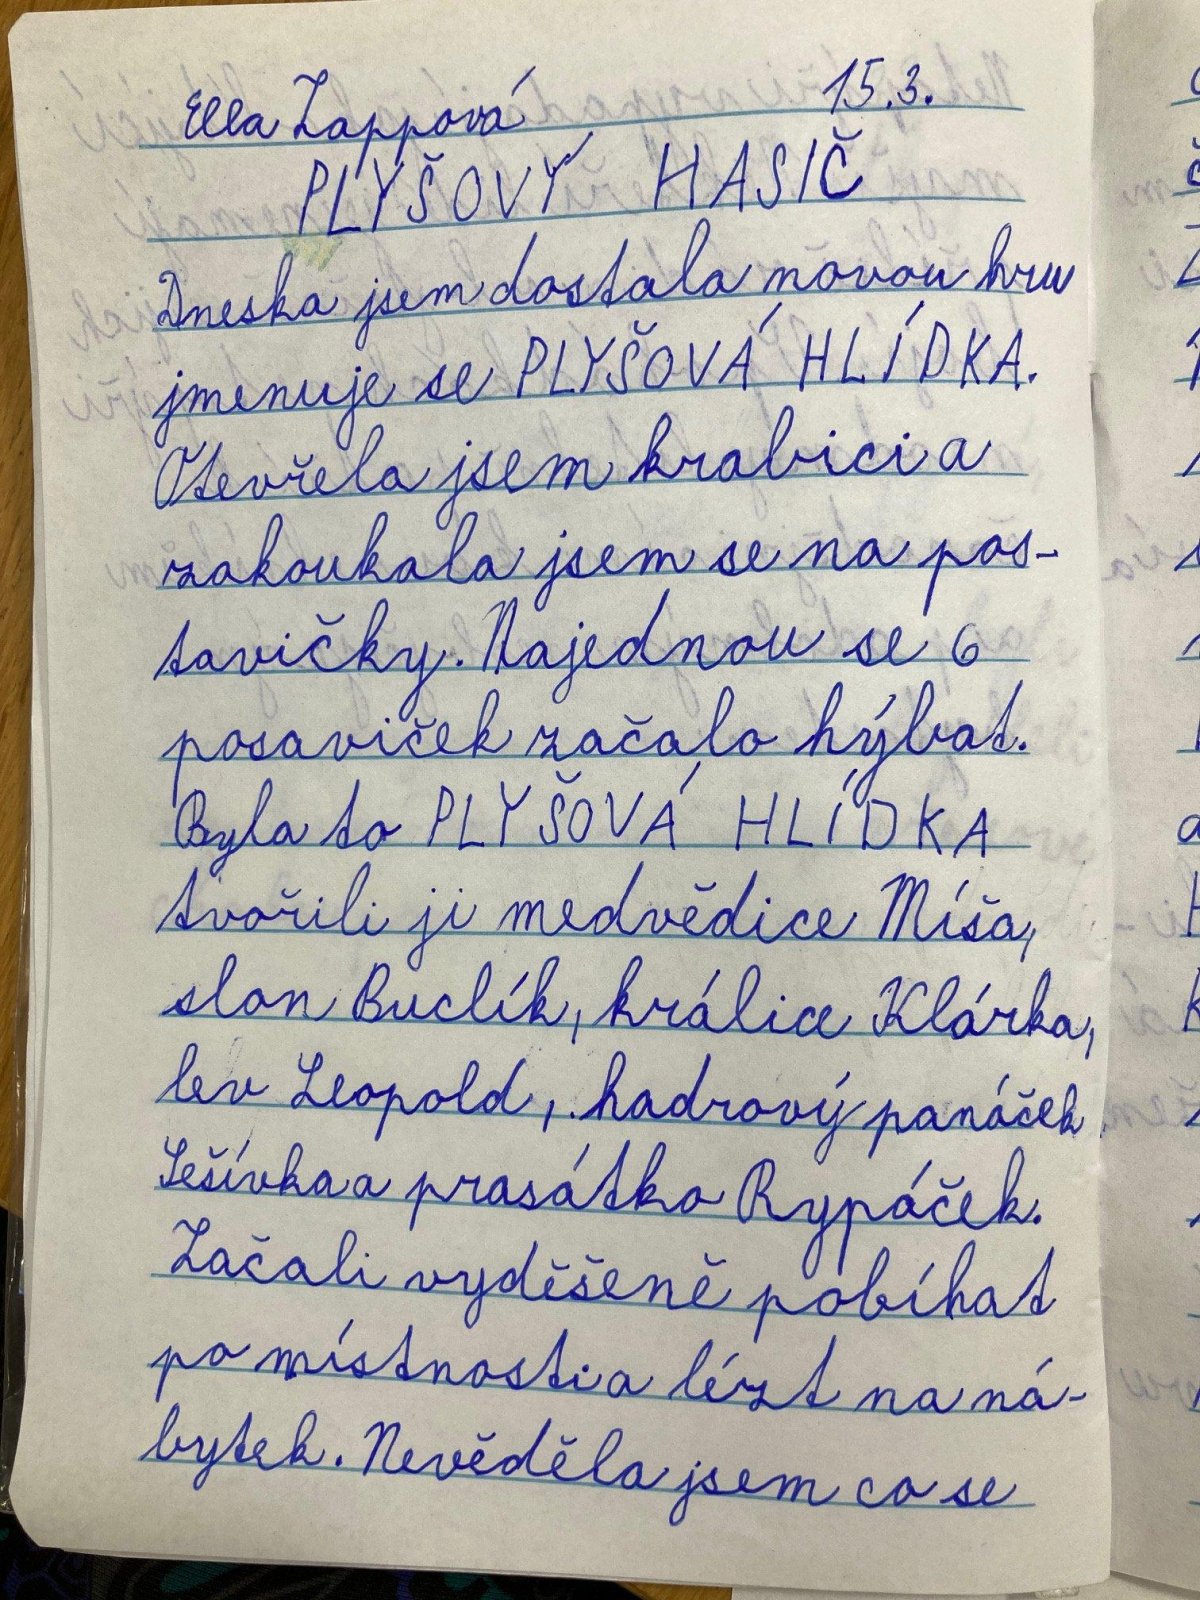 Ella Zappová 15.3.
PLYŠOVÝ HASIČ
Dneska jsem dostala novou hru
jmenuje se PLYŠOVÁ HLÍDKA.
Otevřela jsem krabici a
zakoukala jsem se na pos-
tavičky. Najednou se 6
posaviček začalo hýbat.
Byla to PLYŠOVÁ HLÍDKA
tvořili ji medvědice Míša,
slon Buclík, králice Klárka,
lev Leopold, hadrový panáček
Sešívka a prasátko Rypáček.
Začali vyděšeně pobíhat
po místnosti a lézt na ná-
bytek. Nevěděla jsem co se